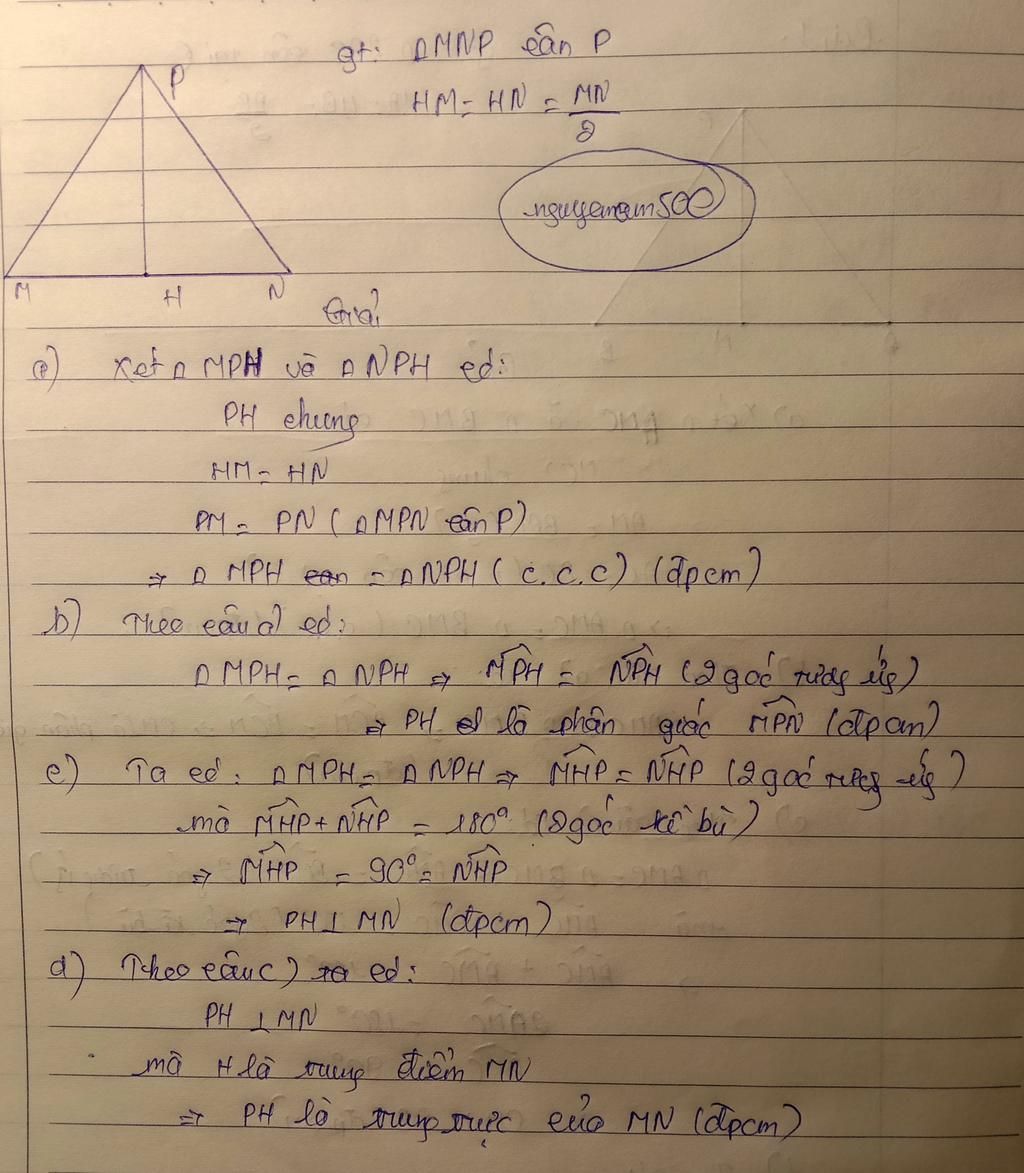 gt: ΔMNP cân P
HM = HN = MN/2
P
M H N
Giải
a) Xét Δ MPH và Δ NPH có:
PH chung
HM = HN
PM = PN (ΔMPN cân P)
⇒ Δ MPH = ΔNPH (c.c.c) (đpcm)
b) Theo câu a) có:
ΔMPH = ΔNPH ⇒ MPH = NPH (2 góc tương ứg)
⇒ PH là phân giác MPN (đpcm)
c) Ta có: ΔMPH = ΔNPH ⇒ MHP = NHP (2 góc tương ứg)
mà MHP + NHP = 180° (2 góc kề bù)
⇒ MHP = 90° = NHP
⇒ PH ⊥ MN (đpcm)
d) Theo câu c) ta có:
PH ⊥ MN
mà H là trung điểm MN
⇒ PH là trung trực của MN (đpcm)